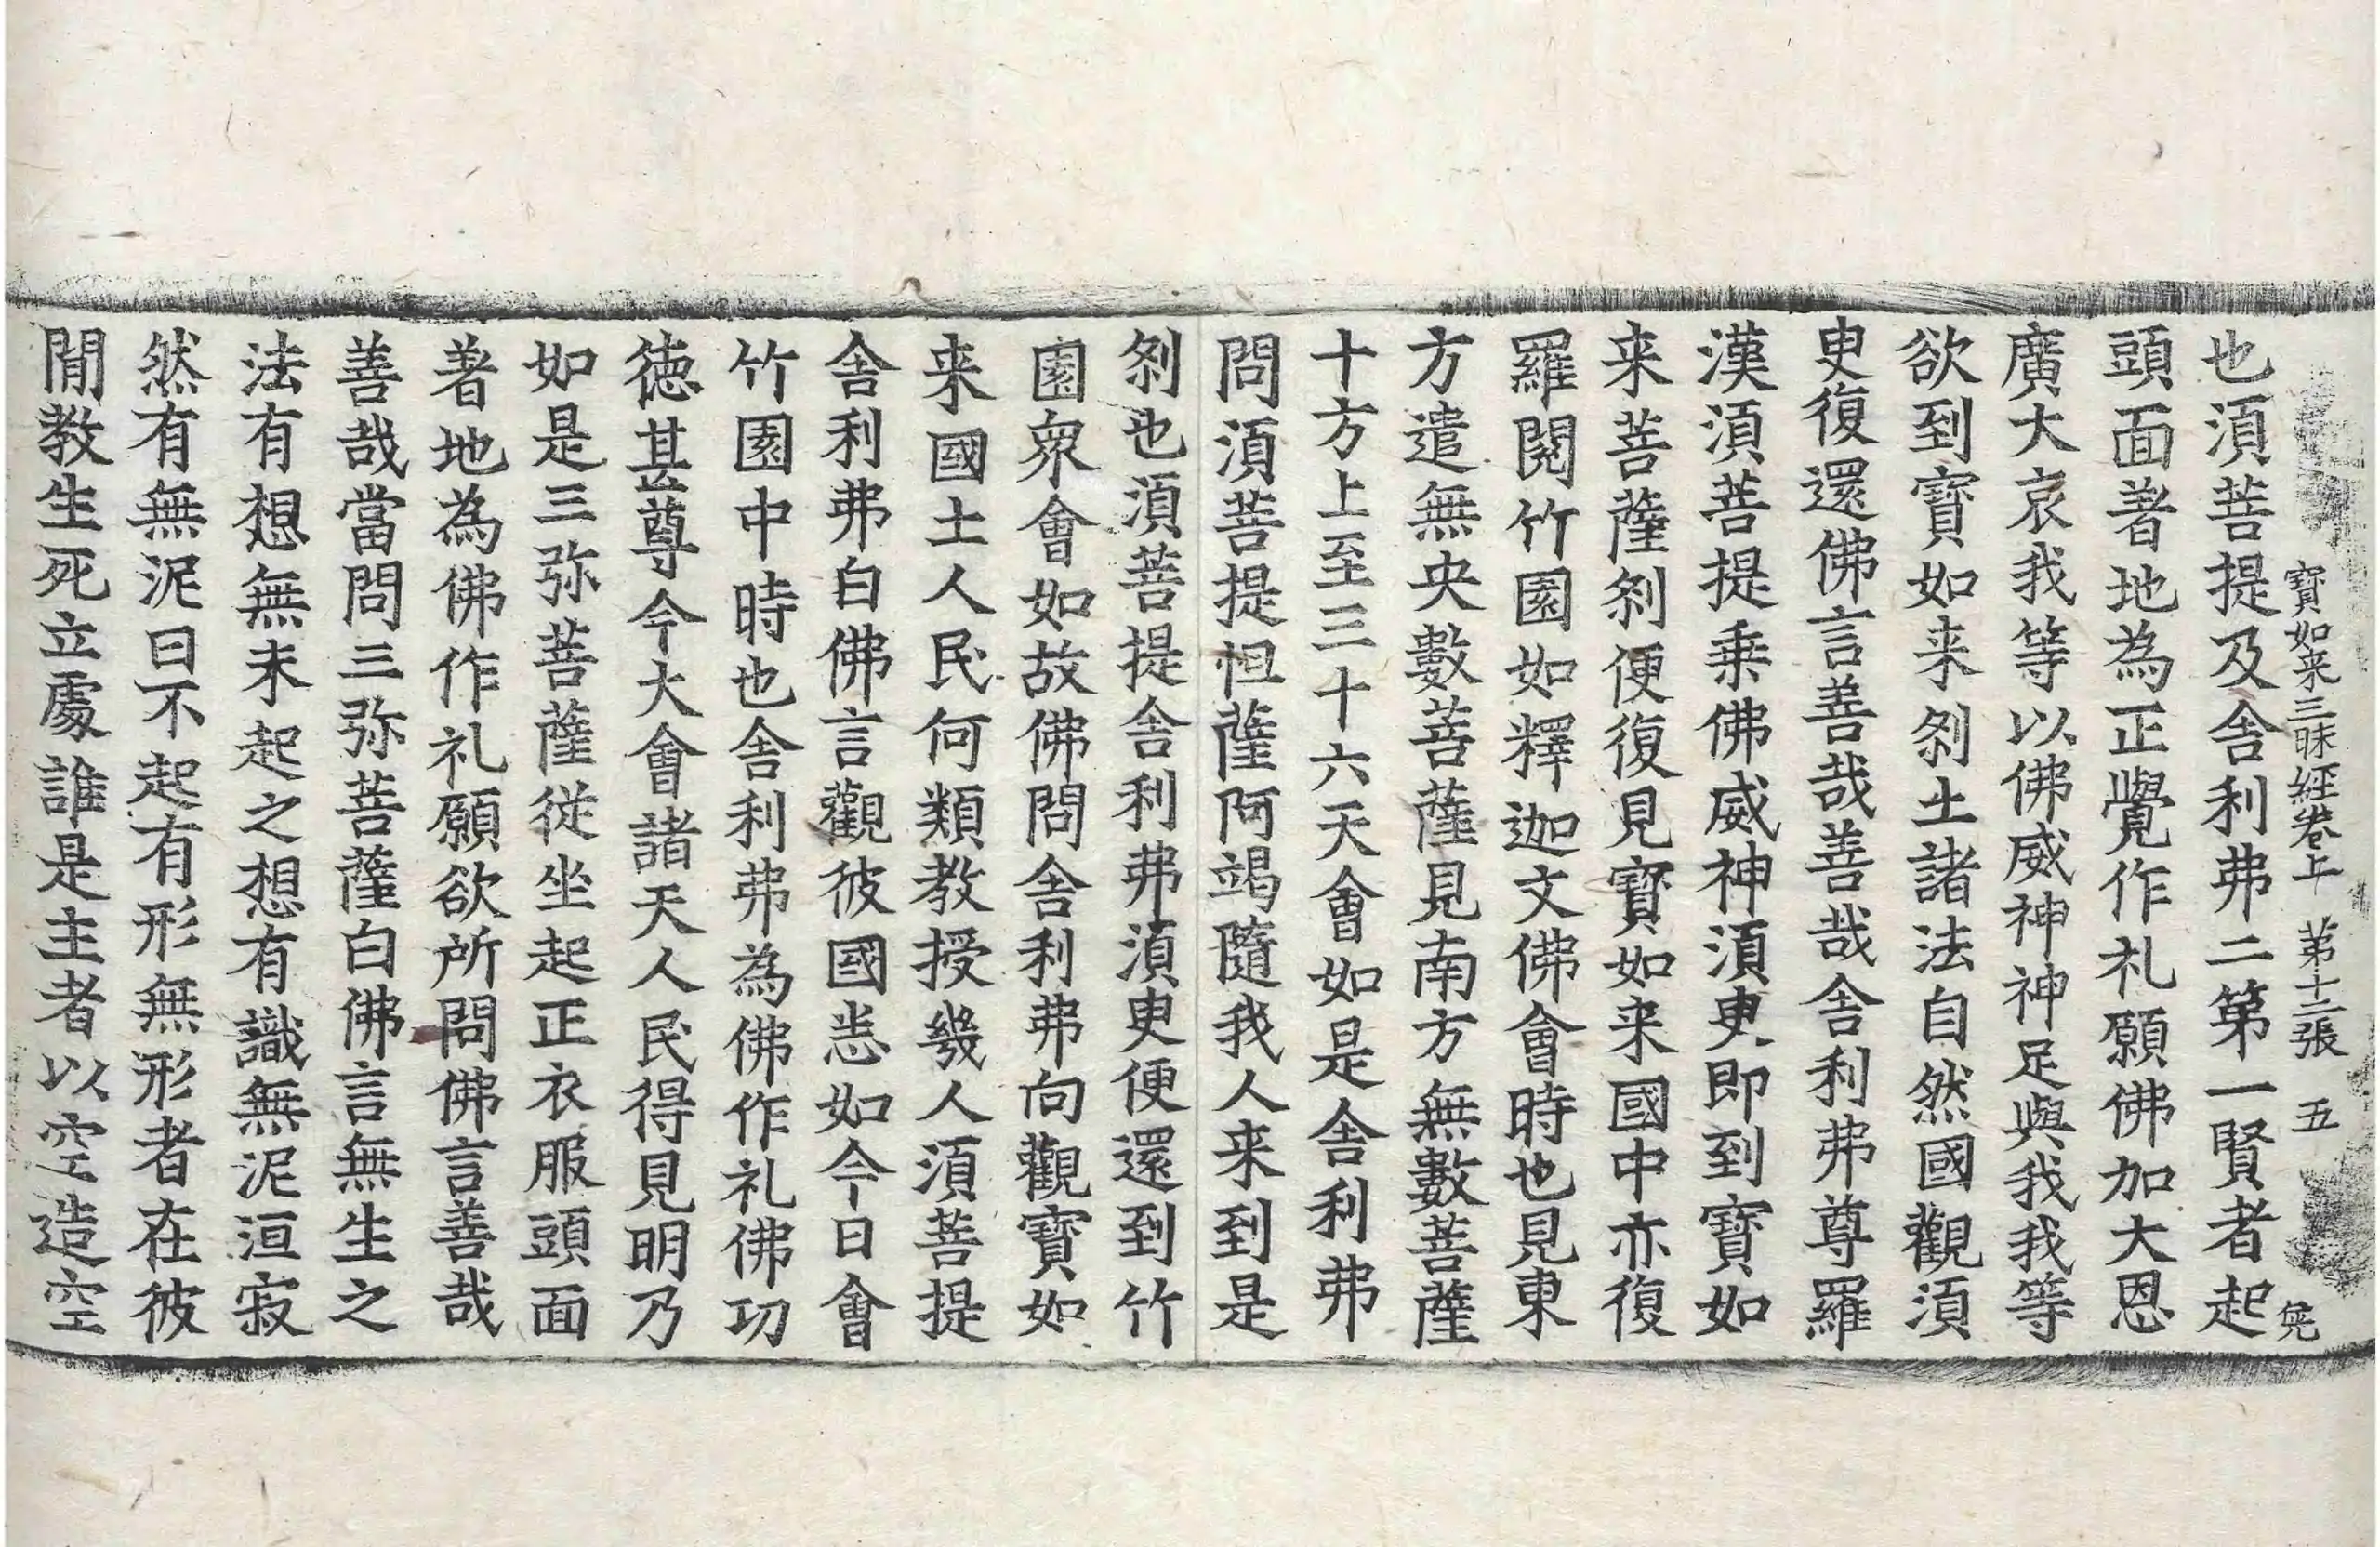 寶如来三昧經卷上 第十二張 五
也湏菩提及舎利弗二第一賢者起
頭面著地為正覺作礼願佛加大恩
廣大哀我等以佛威神神足與我我等
欲到寶如来刹土諸法自然國觀湏
臾復還佛言善哉善哉舎利弗尊羅
漢湏菩提乗佛威神湏臾即到寶如
来菩薩刹便復見寶如来國中亦復
羅閱竹園如釋迦文佛會時也見東
方遣無央數菩薩見南方無數菩薩
十方上至三十六天會如是舎利弗
問湏菩提怛薩阿竭隨我人来到是
刹也湏菩提舎利弗湏臾便還到竹
園衆會如故佛問舎利弗向觀寶如
来國土人民何類教授幾人湏菩提
舎利弗白佛言觀彼國悉如今日會
竹園中時也舎利弗為佛作礼佛功
徳甚尊今大會諸天人民得見明乃
如是三弥菩薩従坐起正衣服頭面
著地為佛作礼願欲所問佛言善哉
善哉當問三弥菩薩白佛言無生之
法有想無未起之想有識無泥洹寂
然有無泥曰不起有形無形者在彼
閒教生死立處誰是主者以空造空